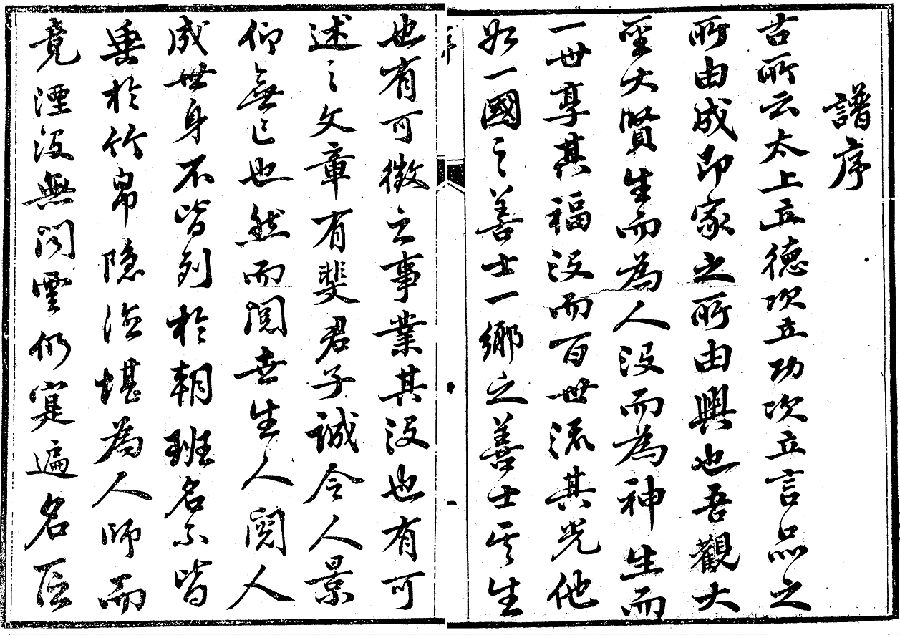 譜序
古所云太上立德次立功次立言品之
所由成即家之所由興也吾觀大
聖大賢生而為人沒而為神生而
一世享其福沒而百世流其光他
如一國之善士一鄉之善士其生
也有可徵之事業其沒也有可
述之文章有斐君子誠令人景
仰無已也然而閱世生人閱人
成世身不皆列於朝班名不皆
垂於竹帛隱德堪為人師而
竟湮沒無聞雲仍寔遍名
序